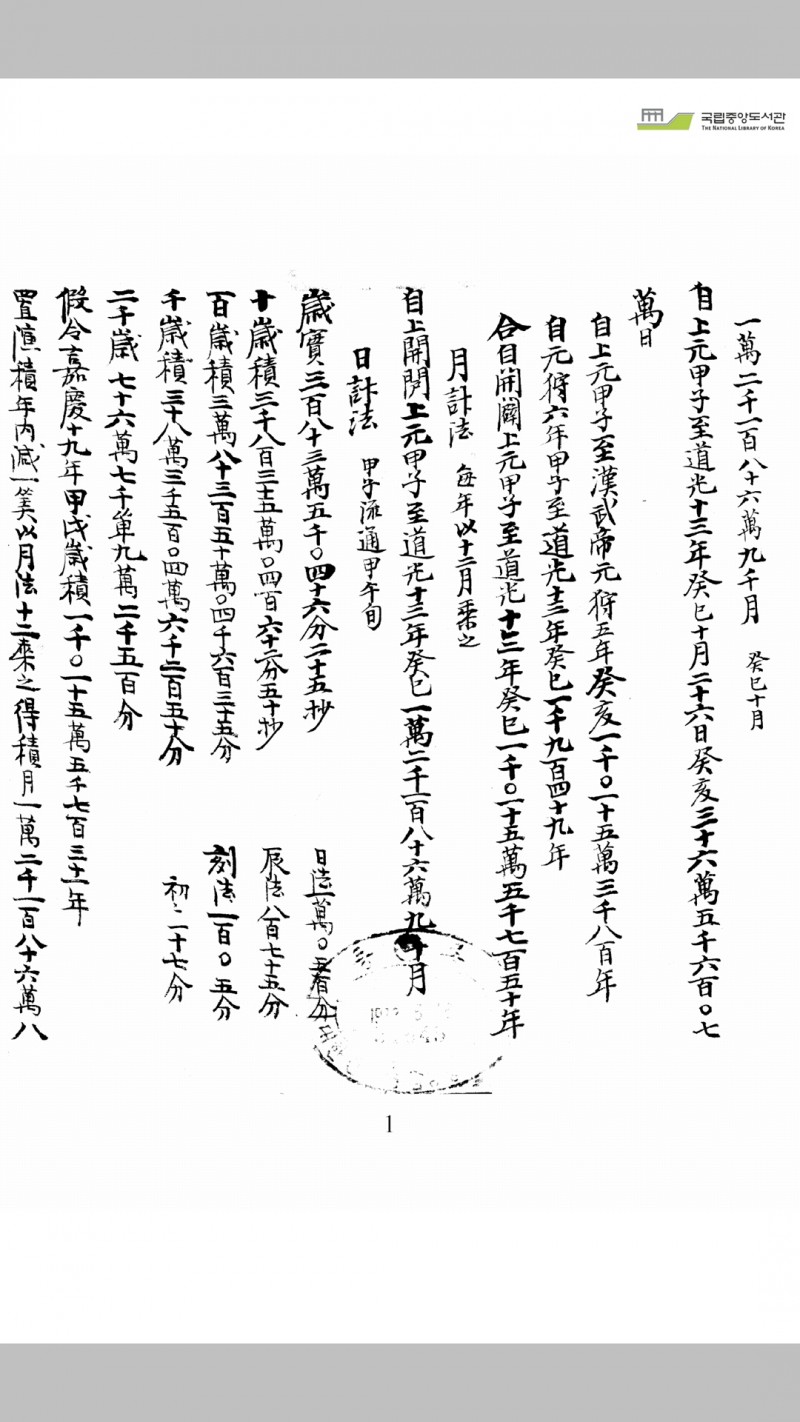 국립중앙도서관
THE NATIONAL LIBRARY OF KOREA
一萬二千一百八十六萬九千月 癸巳十月
自上元甲子至道光十三年癸巳十月二十六日癸亥三十六萬五千六百〇七
萬日
自上元甲子至漢武帝元狩五年癸亥一千〇一十五萬三千八百年
自元狩六年甲子至道光十三年癸巳一千九百四十九年
合自開闢上元甲子至道光十三年癸巳一千〇一十五萬五千七百五十年
月計法 每年以十二月乘之
自上開闢上元甲子至道光十三年癸巳一萬二千一百八十六萬九千月
日計法 甲子流通甲午旬
歲實三百八十三萬五千〇四十六分二十五抄 日法一萬〇五百分
十歲積三千八百三十五萬〇四百六十二分五十抄 辰法八百七十五分
百歲積三萬八十三百五十萬〇四千六百三十五分 刻法一百〇五分
千歲積三十八萬三千五百〇四萬六千二百五十分 初二一十七分
二千歲七十六萬七千〇九萬二千五百分
假令嘉慶十九年甲戌歲積一千〇一十五萬五千七百三十一年
置憶積年內減一筭以月法十二乘之得積月一萬二千一百八十六萬八
1